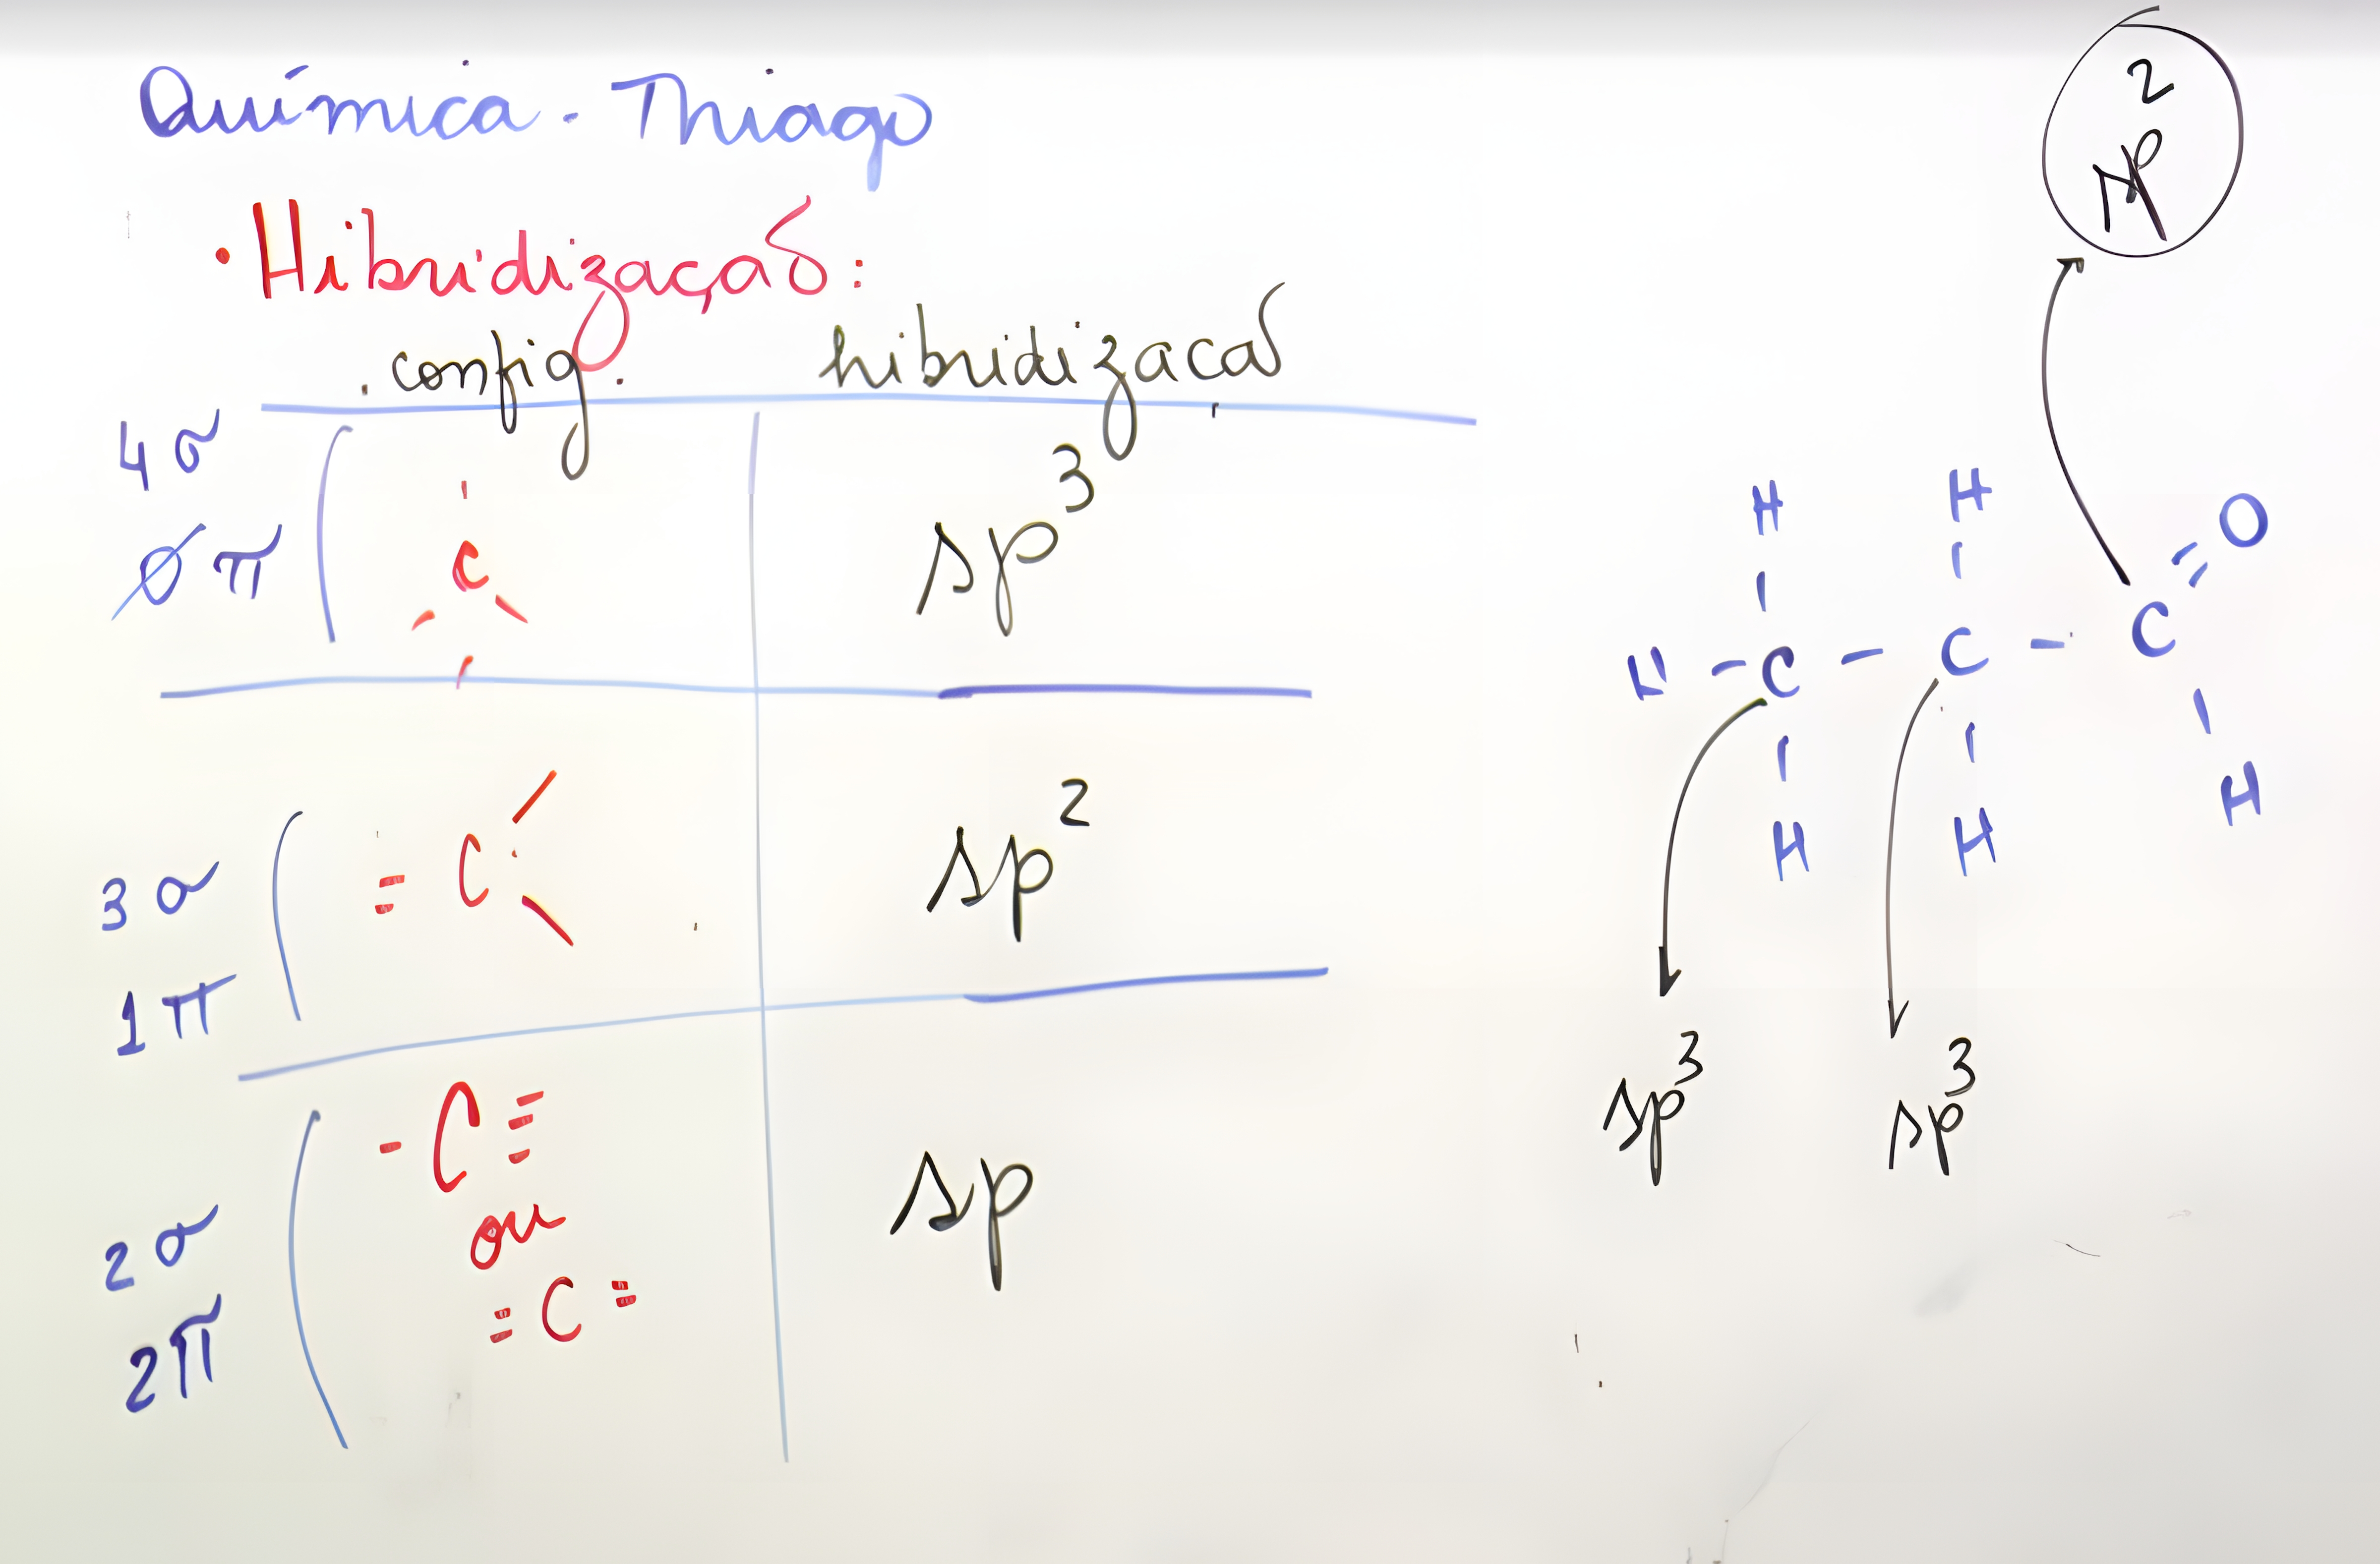 Química - Thiago
• Hibridização:
config. hibridização
4σ
0π
C
sp³
3σ
1π
= C
sp²
2σ
2π
- C ≡
ou
= C =
sp
sp²
H H
H - C - C - C = O
H H H
sp³ sp³